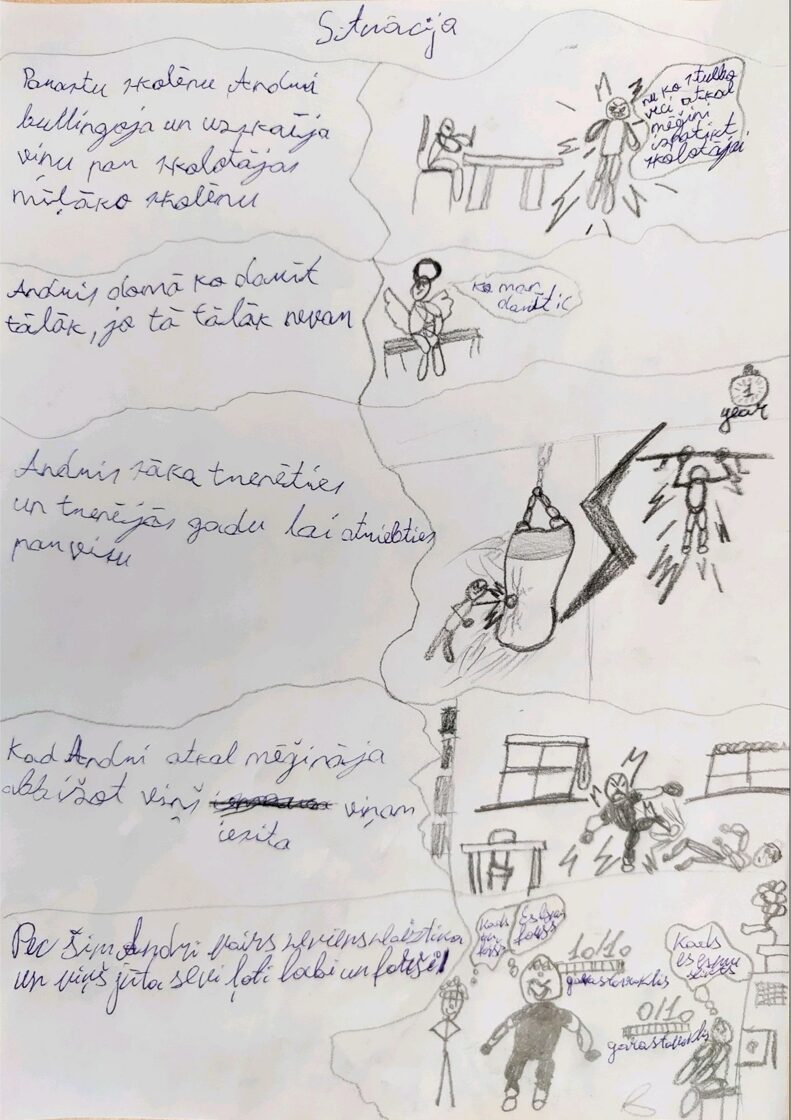 Situācija
Parastu skolēnu Andri
bullingoja un uzskatīja
viņu par skolotājas
mīļāko skolēnu
nu ko stulbo
veci atkal
mēģini
izpatikt
skolotājai
Andris domā ko darīt
tālāk, jo tā tālāk nevar
ko man
darīt ič
1
year
Andris sāka trenēties
un trenējās gadu lai atriebties
par visu
Kad Andri atkal mēģināja
abbižot viņš viņam
iesita
Pec šim Andri vairs neviens neaiztika
un viņš jūta sevi ļoti labi un forši!
Kāds
viņ
foršs
Es esmu
foršs
10/10
garastāvoklis
Kāds
es esmu
0/10
garastāvoklis